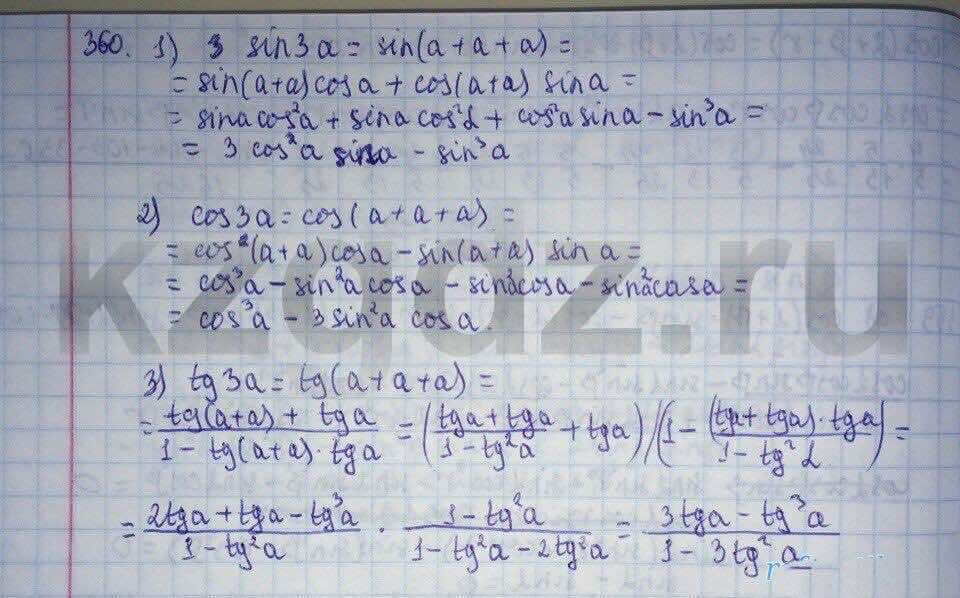 360. 1) sin3a = sin(a + a + a) =
= sin(a+a)cosa + cos(a+a) sina =
= sina cos²a + sina cos²α + cos²a sina − sin³a =
= 3 cos²a sina − sin³a
2) cos3a = cos(a + a + a) =
= cos(a+a)cosa − sin(a+a) sina =
= cos³a − sin²a cosa − sin²acosa − sin²acasa =
= cos³a − 3sin²a cosa.
3) tg3a = tg(a + a + a) =
= (tg(a+a) + tga)/(1 − tg(a+a)·tga) = ((tga + tga)/(1 − tg²a) + tga)/(1 − ((tga + tga)·tga)/(1 − tg²α)) =
= (2tga + tga − tg³a)/(1 − tg²a) · (1 − tg²a)/(1 − tg²a − 2tg²a) = (3tga − tg³a)/(1 − 3tg²a)
kzgdz.ru